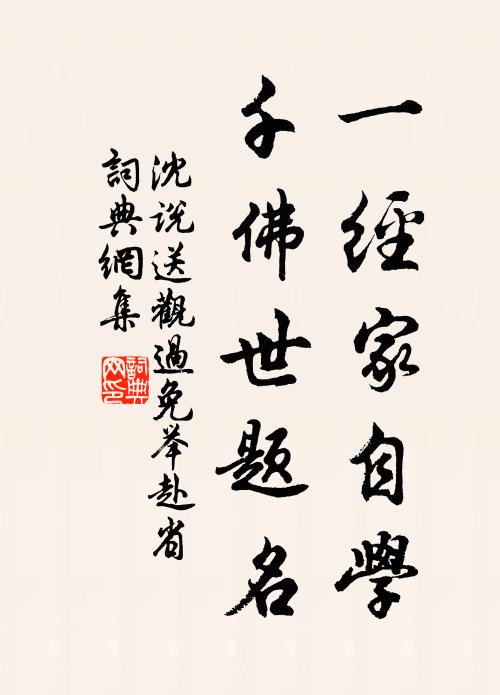 一經家自學
千佛世題名
沈说送觀過免举赴省
詞典網集
詞典
网印